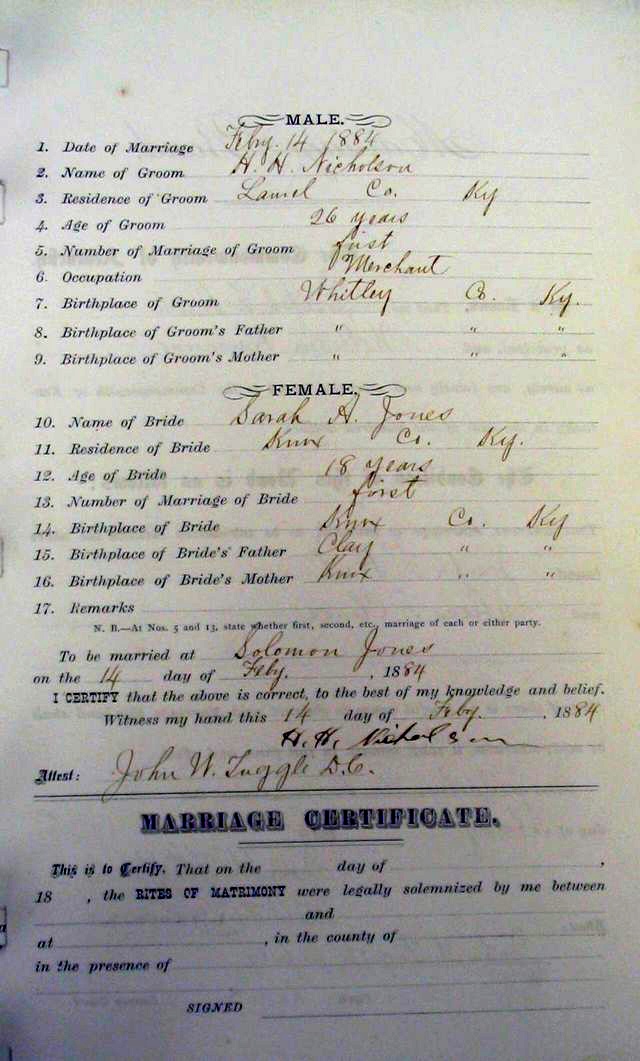 MALE.
1. Date of Marriage Feby. 14 1884
2. Name of Groom H. H. Nicholson
3. Residence of Groom Laurel Co. Ky
4. Age of Groom 26 years
5. Number of Marriage of Groom first
6. Occupation Merchant
7. Birthplace of Groom Whitley Co. Ky.
8. Birthplace of Groom's Father " " "
9. Birthplace of Groom's Mother " " "
FEMALE.
10. Name of Bride Sarah A. Jones
11. Residence of Bride Knox Co. Ky.
12. Age of Bride 18 years
13. Number of Marriage of Bride first
14. Birthplace of Bride Knox Co. Ky
15. Birthplace of Bride's Father Clay " "
16. Birthplace of Bride's Mother Knox " "
17. Remarks
N. B.—At Nos. 5 and 13, state whether first, second, etc., marriage of each or either party.
To be married at Solomon Jones
on the 14 day of Feby. , 1884
I CERTIFY that the above is correct, to the best of my knowledge and belief.
Witness my hand this 14 day of Feby. , 1884
H. H. Nicholson
Attest: John W. Tuggle D.C.
MARRIAGE CERTIFICATE.
This is to Certify, That on the day of ,
18 , the RITES OF MATRIMONY were legally solemnized by me between
and
at , in the county of
in the presence of
SIGNED